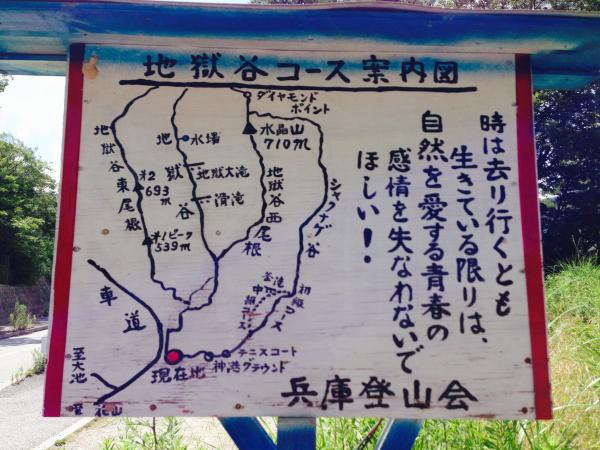 地獄谷コース案内図
ダイヤモンド
ポイント
水晶山
710m
地獄谷東尾根
地獄谷
水場
地獄大滝
滑滝
地獄谷西尾根
シャクナゲ谷
才2
693m
才1ピーク
539m
中級コース
初級コース
車道
テニスコート
神港グラウンド
現在地
至大池
時は去り行くとも
生きている限りは、
自然を愛する青春の
感情を失なわないで
ほしい!
兵庫登山会